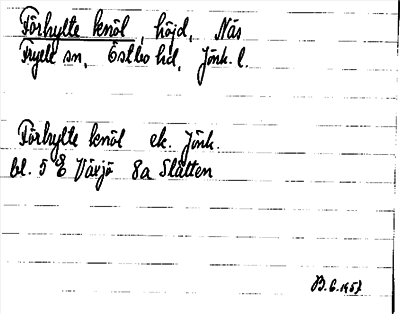 Förhylte knöl, höjd, Näs
Frylle sn, Östbo hd, Jönk. l.
Förhylte knöl ek. Jönk.
bl. 5 E Växjö 8a Slätten
B.G. 1957